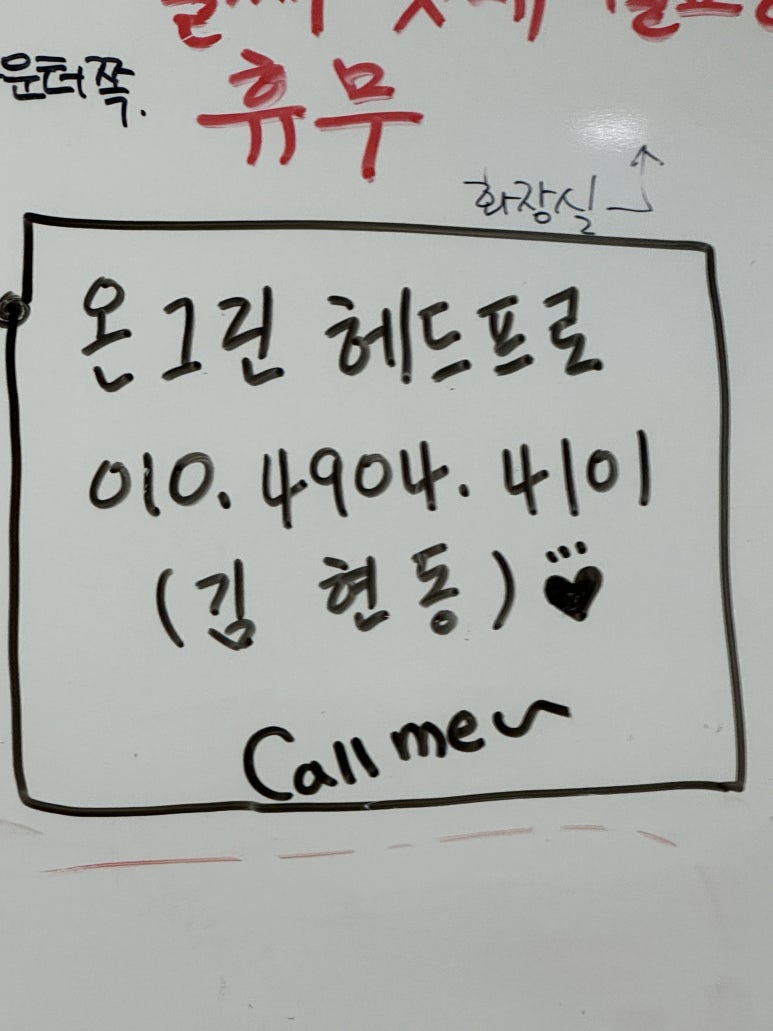 운터쪽.
휴무
화장실
온그린 헤드프로
010. 4904. 4101
(김 현동)
Call me~